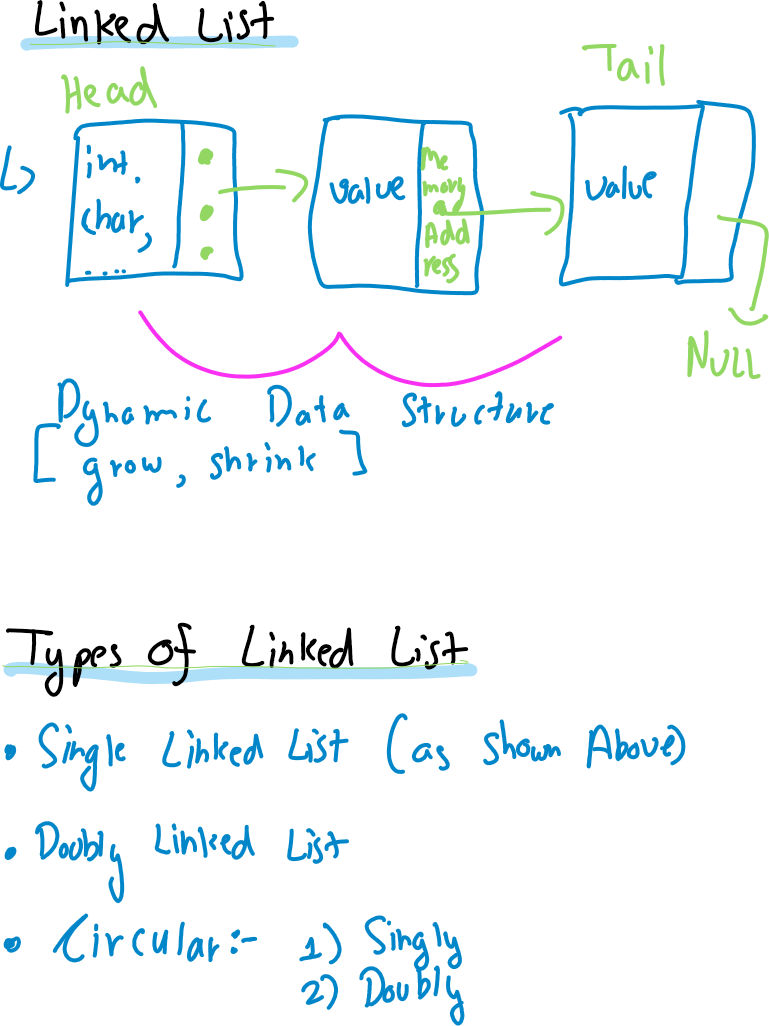 Linked List
Head
Tail
int,
char,
....
value
Me
mory
Add
ress
value
NULL
Dynamic Data Structure
[ grow, shrink ]
Types of Linked List
• Single Linked List (as shown Above)
• Doubly Linked List
• Circular:- 1) Singly
2) Doubly